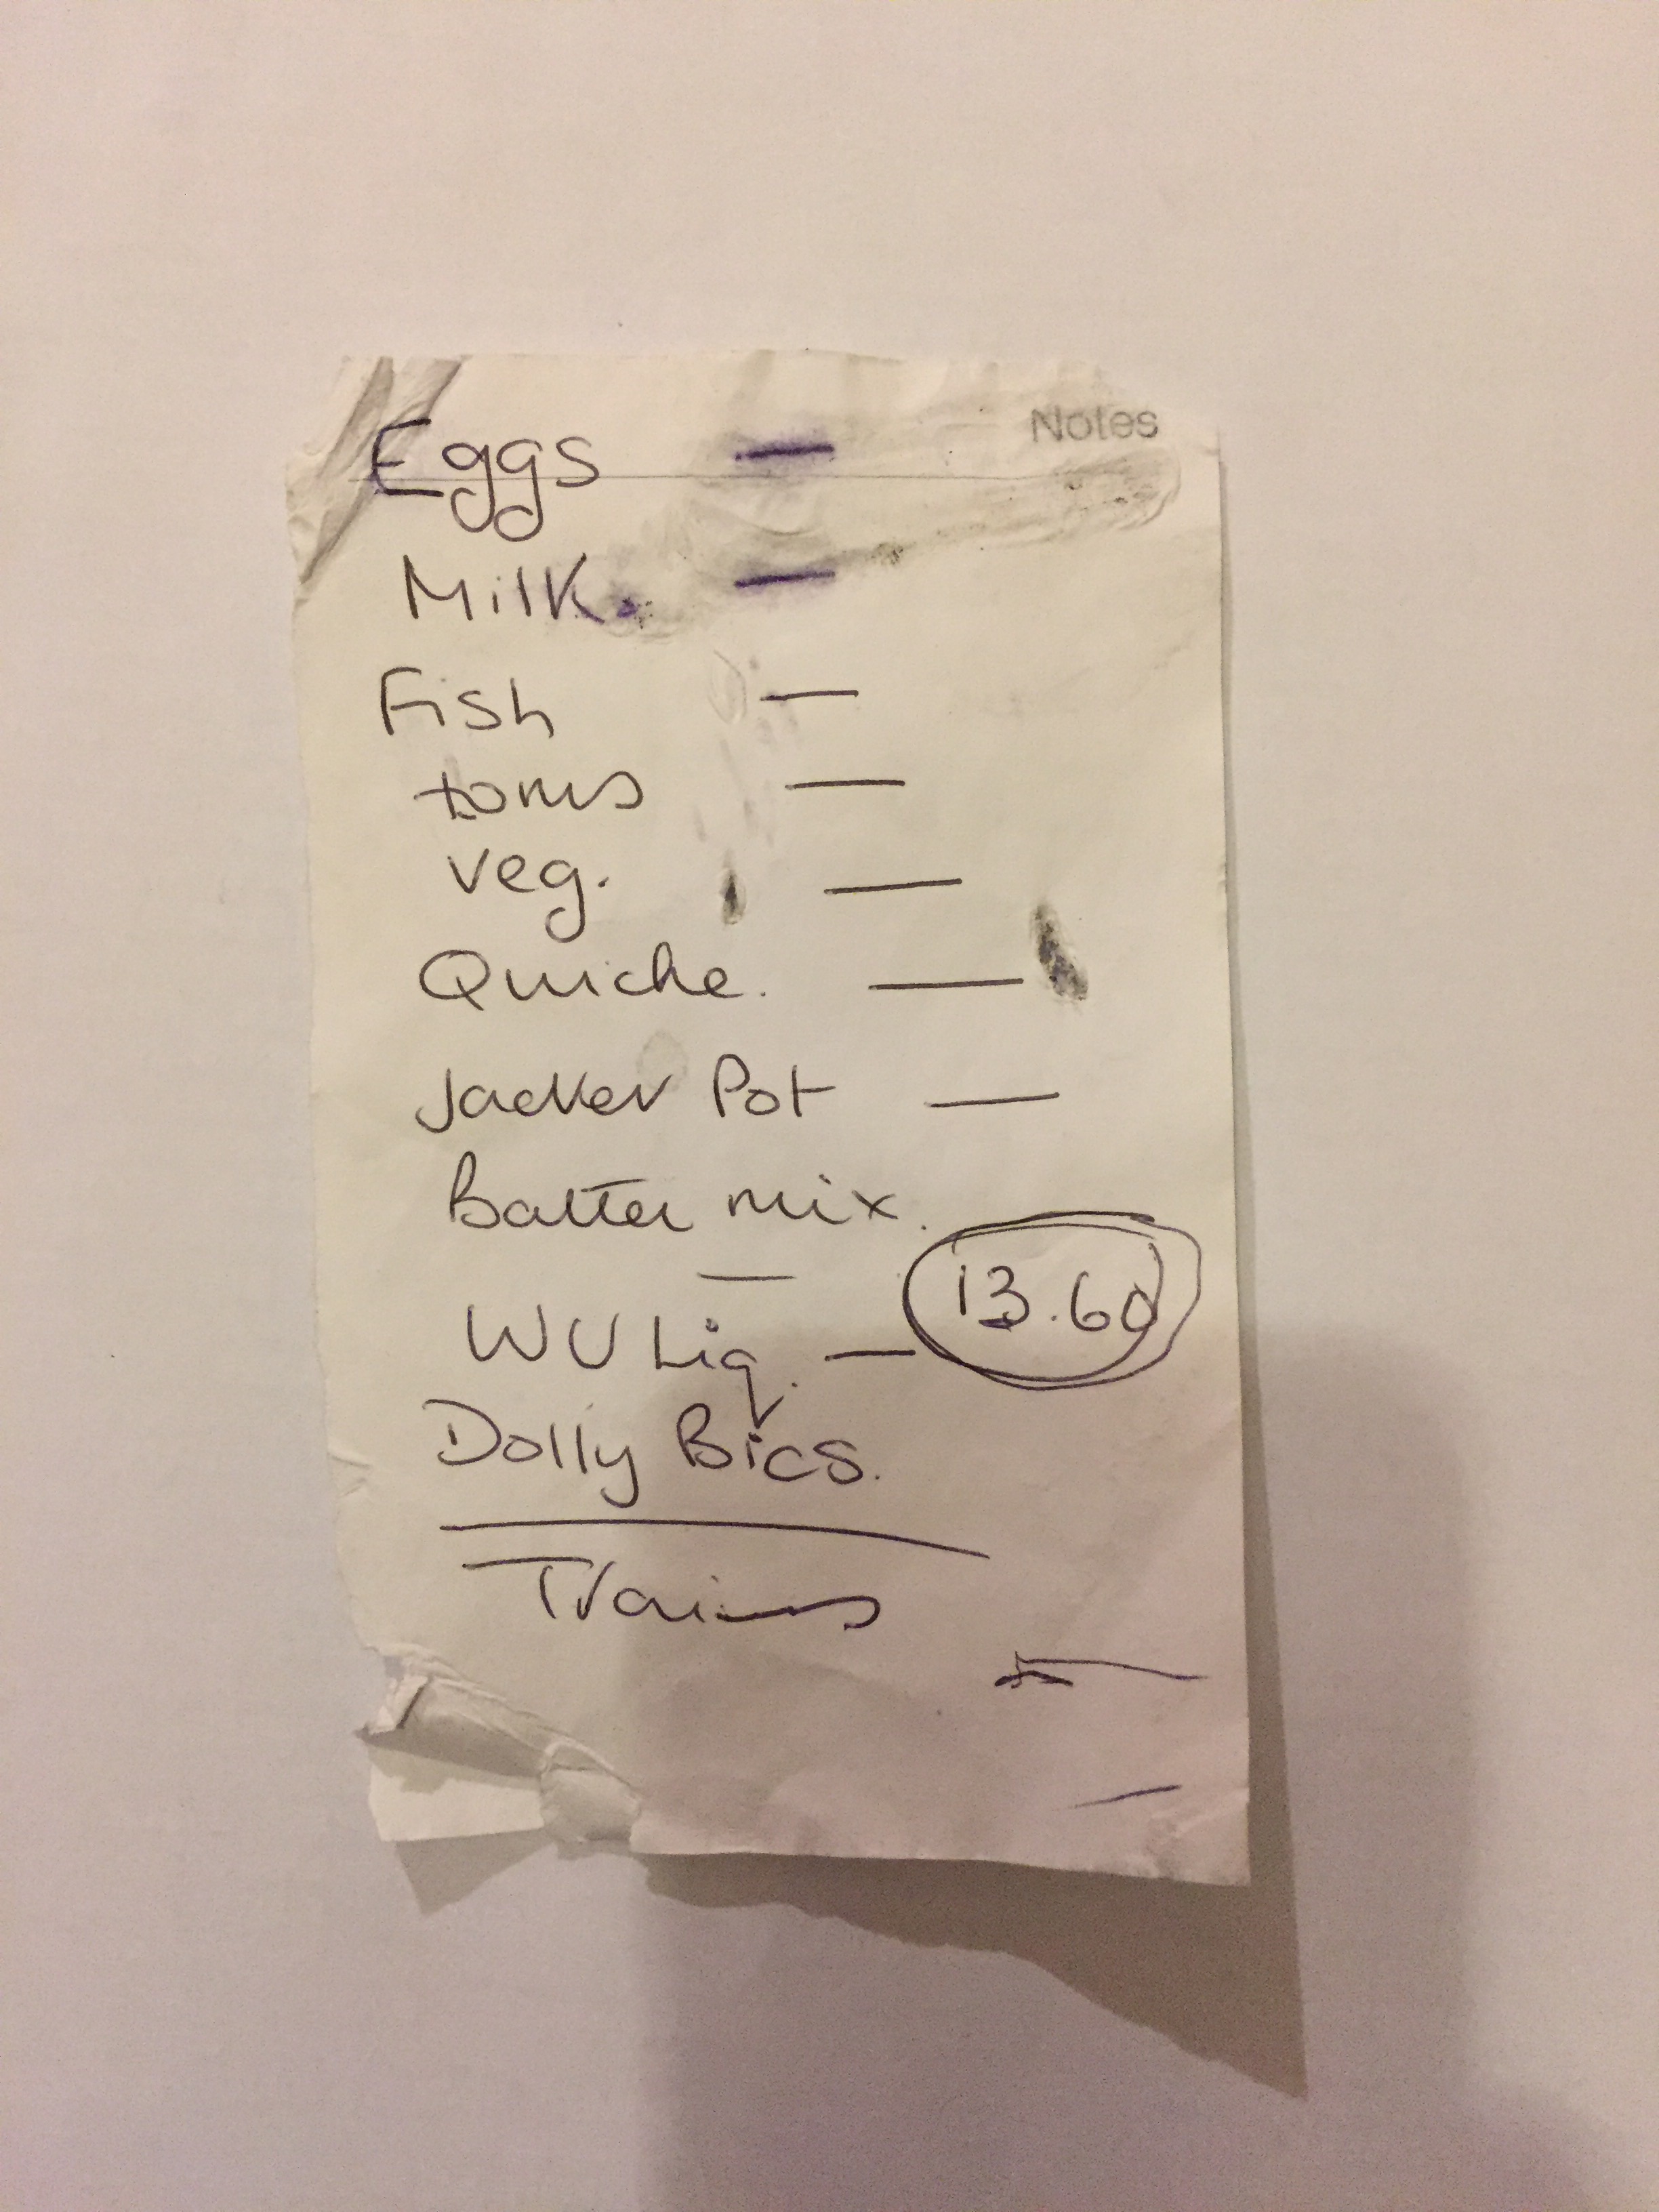 Notes
Eggs —
Milk. —
Fish —
toms —
veg. —
Quiche. —
Jacket Pot —
Batter mix.
—
13.60
WU Liq. —
Dolly Bics.
Trains